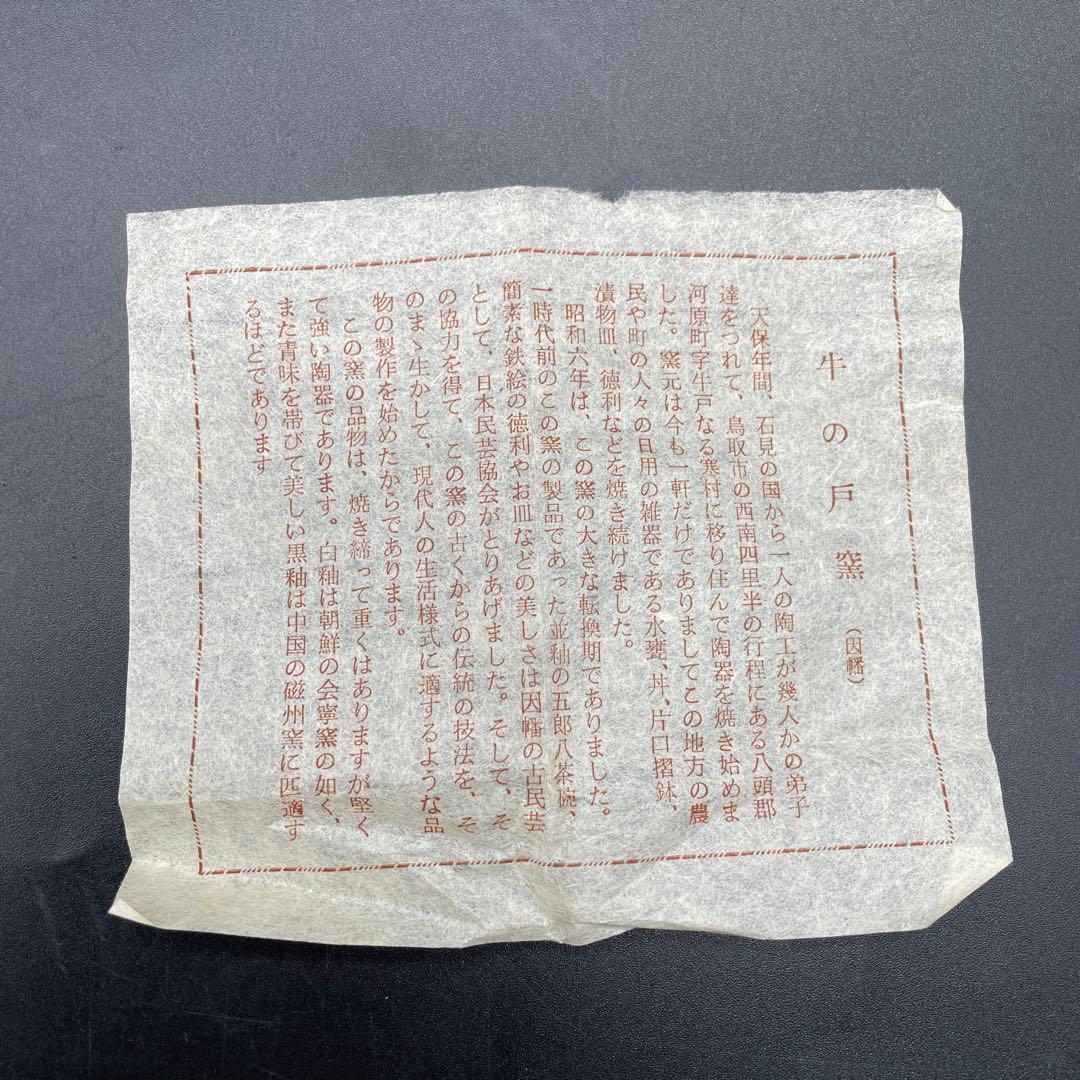 牛の戸窯（因幡）
天保年間、石見の国から一人の陶工が幾人かの弟子
達をつれて、鳥取市の西南四里半の行程にある八頭郡
河原町字牛戸なる寒村に移り住んで陶器を焼き始めま
した。窯元は今も一軒だけでありましてこの地方の農
民や町の人々の日用の雑器である水甕、丼、片口摺鉢、
漬物皿、徳利などを焼き続けました。
昭和六年は、この窯の大きな転換期でありました。
一時代前のこの窯の製品であった並釉の五郎八茶碗、
簡素な鉄絵の徳利やお皿などの美しさは因幡の古民芸
として、日本民芸協会がとりあげました。そして、そ
の協力を得て、この窯の古くからの伝統の技法を、そ
のまゝ生かして、現代人の生活様式に適するような品
物の製作を始めたからであります。
この窯の品物は、焼き締って重くはありますが堅く
て強い陶器であります。白釉は朝鮮の会寧窯の如く、
また青味を帯びて美しい黒釉は中国の磁州窯に匹適す
るほどであります